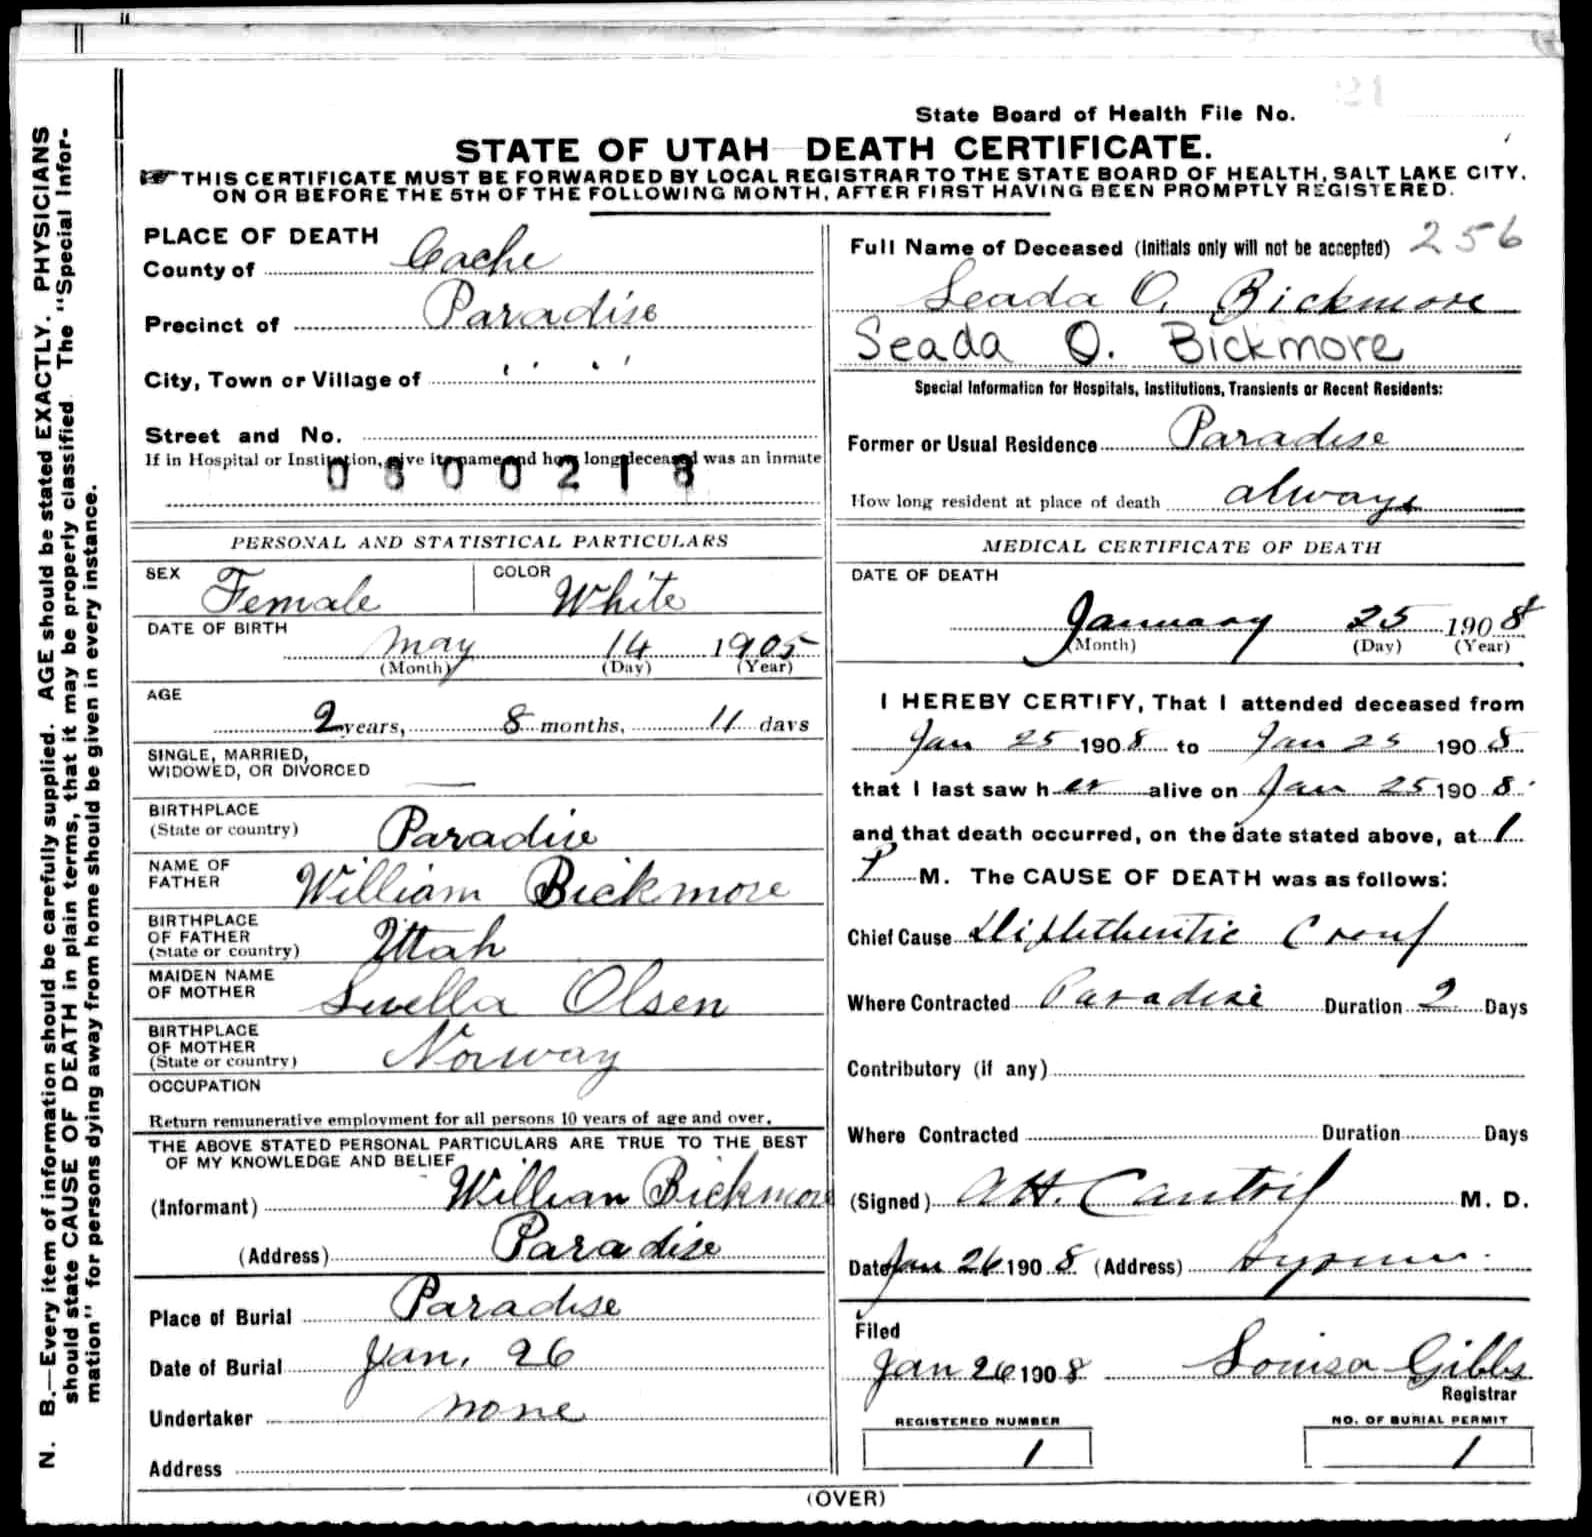 21
State Board of Health File No.
STATE OF UTAH—DEATH CERTIFICATE.
THIS CERTIFICATE MUST BE FORWARDED BY LOCAL REGISTRAR TO THE STATE BOARD OF HEALTH, SALT LAKE CITY,
ON OR BEFORE THE 5TH OF THE FOLLOWING MONTH, AFTER FIRST HAVING BEEN PROMPTLY REGISTERED.
N. B.—Every item of information should be carefully supplied. AGE should be stated EXACTLY. PHYSICIANS
should state CAUSE OF DEATH in plain terms, that it may be properly classified. The "Special Infor-
mation" for persons dying away from home should be given in every instance.
PLACE OF DEATH
County of Cache
Precinct of Paradise
City, Town or Village of " "
Street and No.
If in Hospital or Institution, give its name and how long deceased was an inmate
0800218
PERSONAL AND STATISTICAL PARTICULARS
SEX Female COLOR White
DATE OF BIRTH
May 14 1905
(Month) (Day) (Year)
AGE
2 years, 8 months, 11 days
SINGLE, MARRIED,
WIDOWED, OR DIVORCED —
BIRTHPLACE
(State or country) Paradise
NAME OF
FATHER William Bickmore
BIRTHPLACE
OF FATHER
(State or country) Utah
MAIDEN NAME
OF MOTHER Luella Olsen
BIRTHPLACE
OF MOTHER
(State or country) Norway
OCCUPATION
Return remunerative employment for all persons 10 years of age and over.
THE ABOVE STATED PERSONAL PARTICULARS ARE TRUE TO THE BEST
OF MY KNOWLEDGE AND BELIEF
(Informant) William Bickmore
(Address) Paradise
Place of Burial Paradise
Date of Burial Jan. 26
Undertaker none
Address
Full Name of Deceased (Initials only will not be accepted) 256
Seada O. Bickmore
Seada O. Bickmore
Special Information for Hospitals, Institutions, Transients or Recent Residents:
Former or Usual Residence Paradise
How long resident at place of death always
MEDICAL CERTIFICATE OF DEATH
DATE OF DEATH
January 25 1908
(Month) (Day) (Year)
I HEREBY CERTIFY, That I attended deceased from
Jan 25 1908 to Jan 25 1908
that I last saw her alive on Jan 25 1908
and that death occurred, on the date stated above, at 1
P M. The CAUSE OF DEATH was as follows:
Chief Cause Diphtheritic Croup
Where Contracted Paradise Duration 2 Days
Contributory (if any)
Where Contracted Duration Days
(Signed) A H. Cantril M. D.
Date Jan 26 1908 (Address) Hyrum
Filed
Jan 26 1908 Louisa Gibbs
Registrar
REGISTERED NUMBER
1
NO. OF BURIAL PERMIT
1
(OVER)